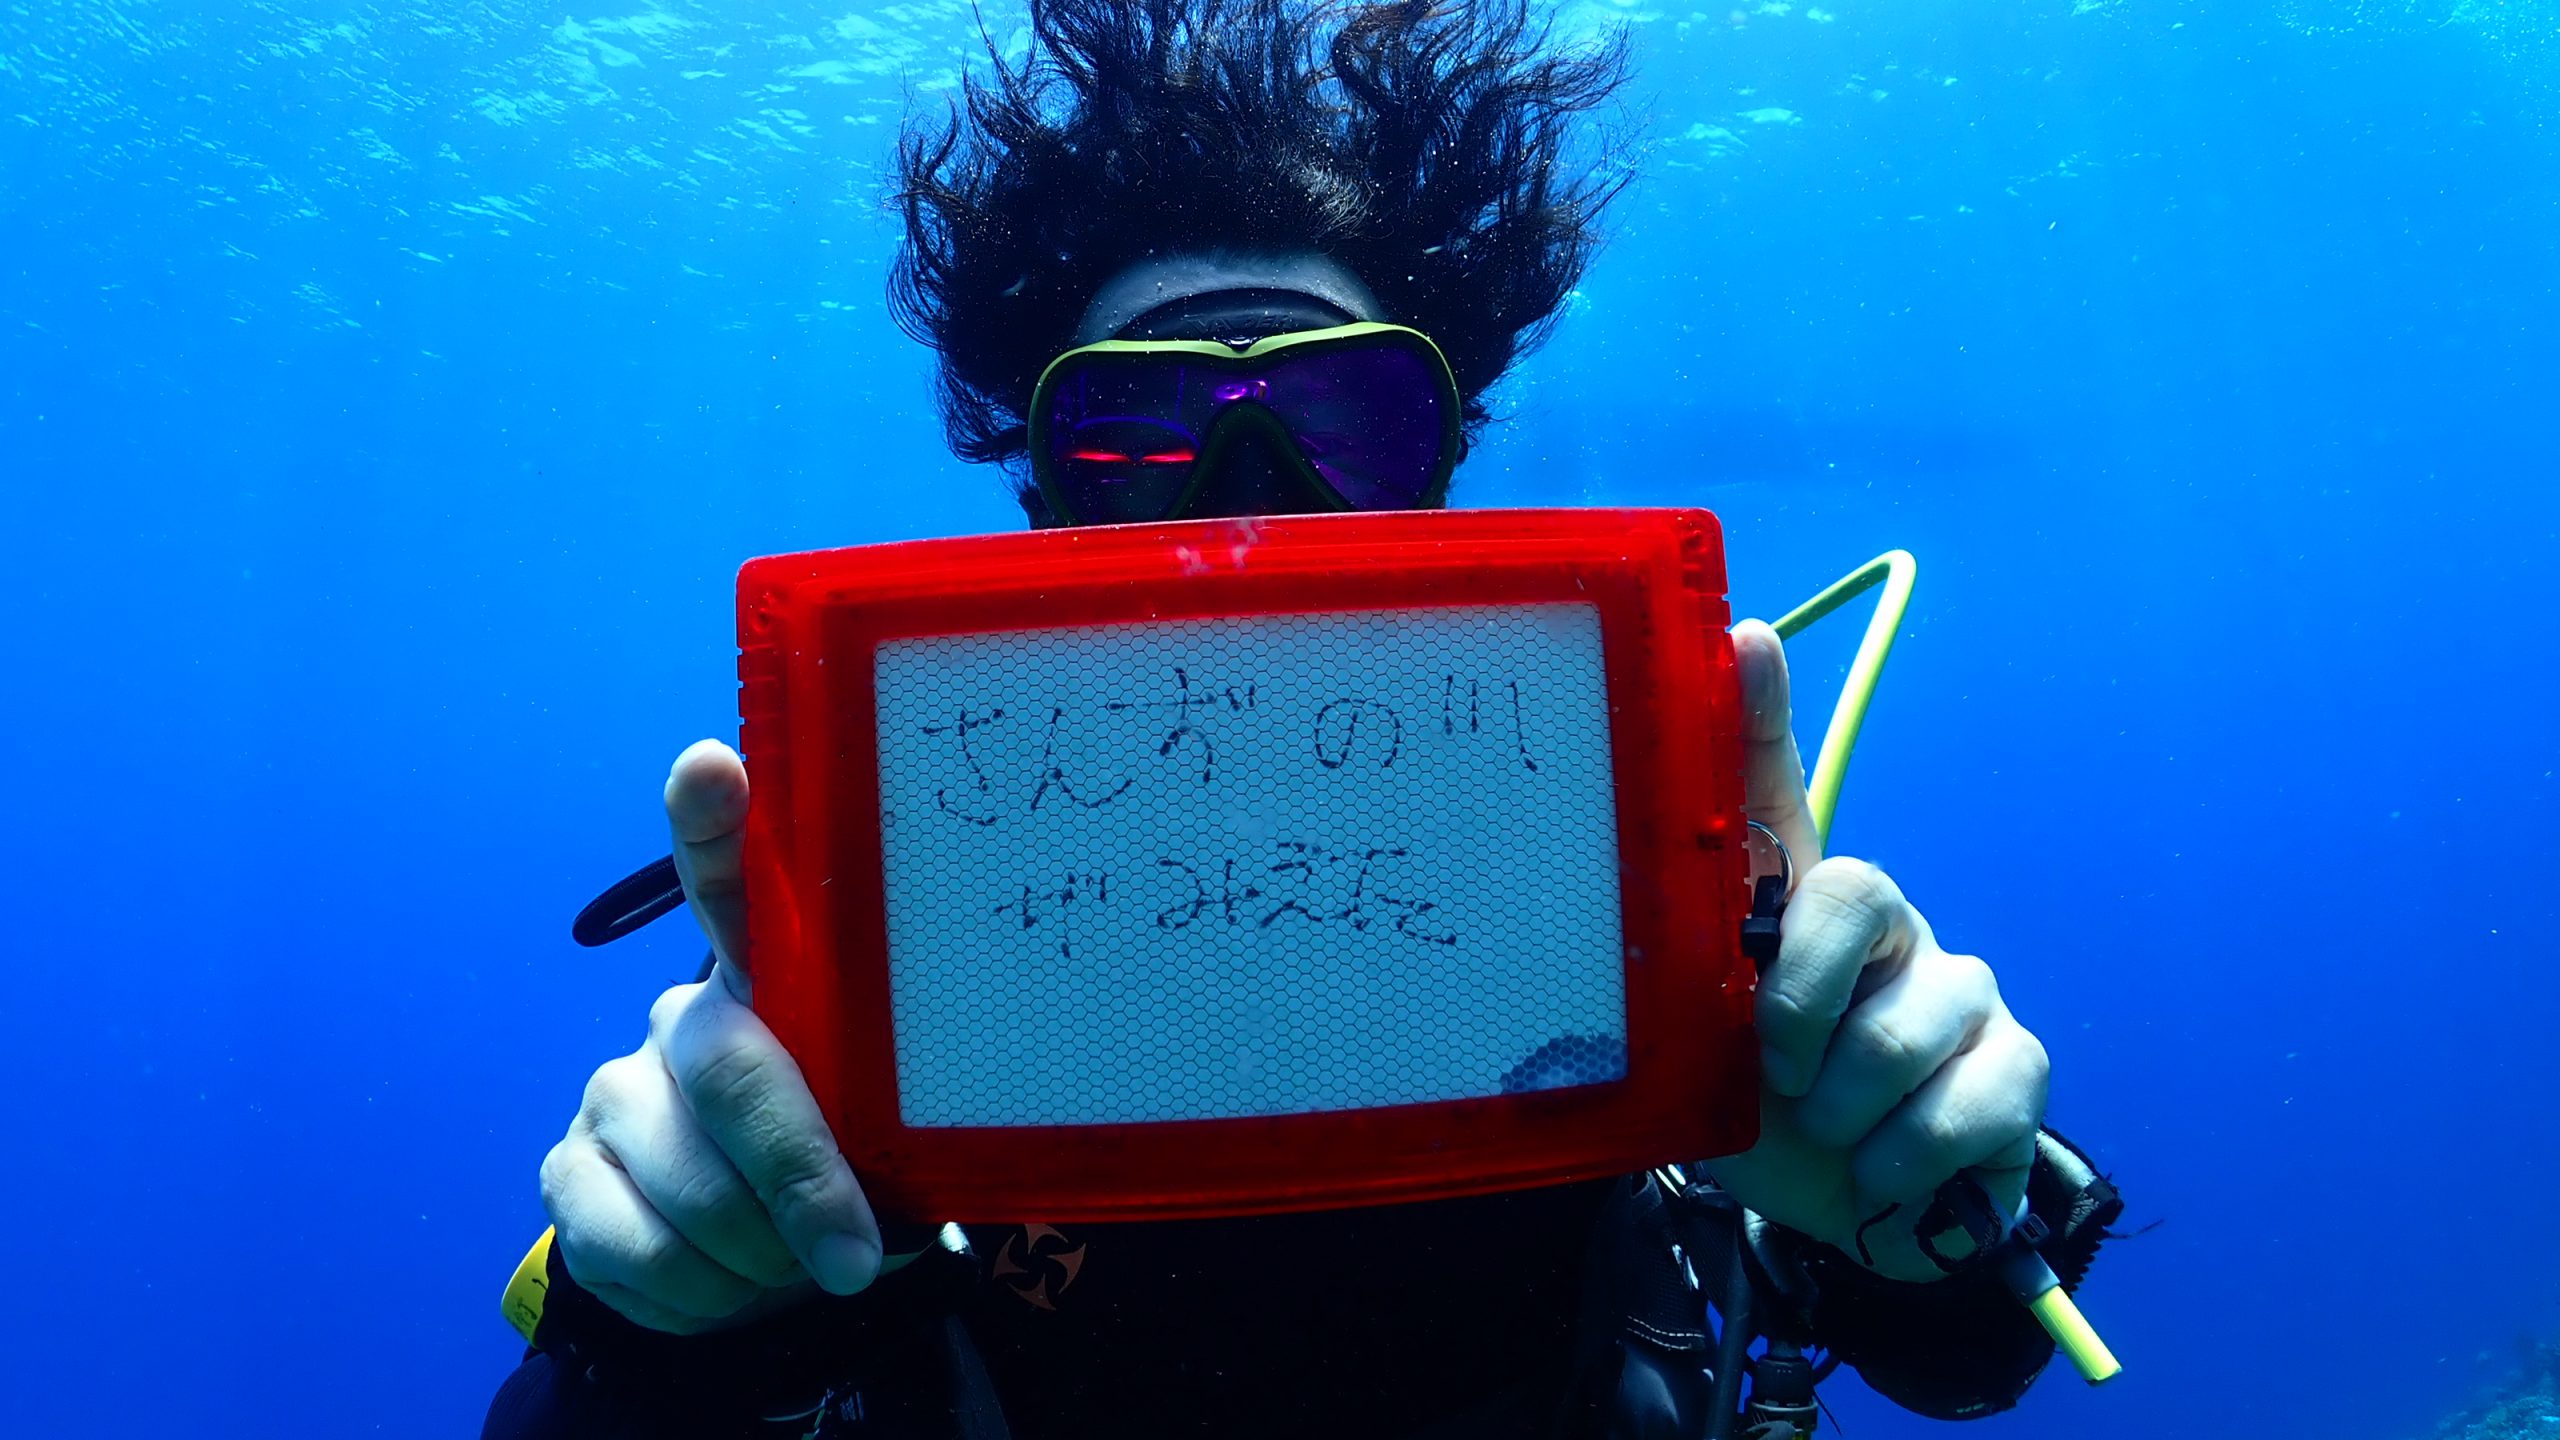 さんずの川
が みえた